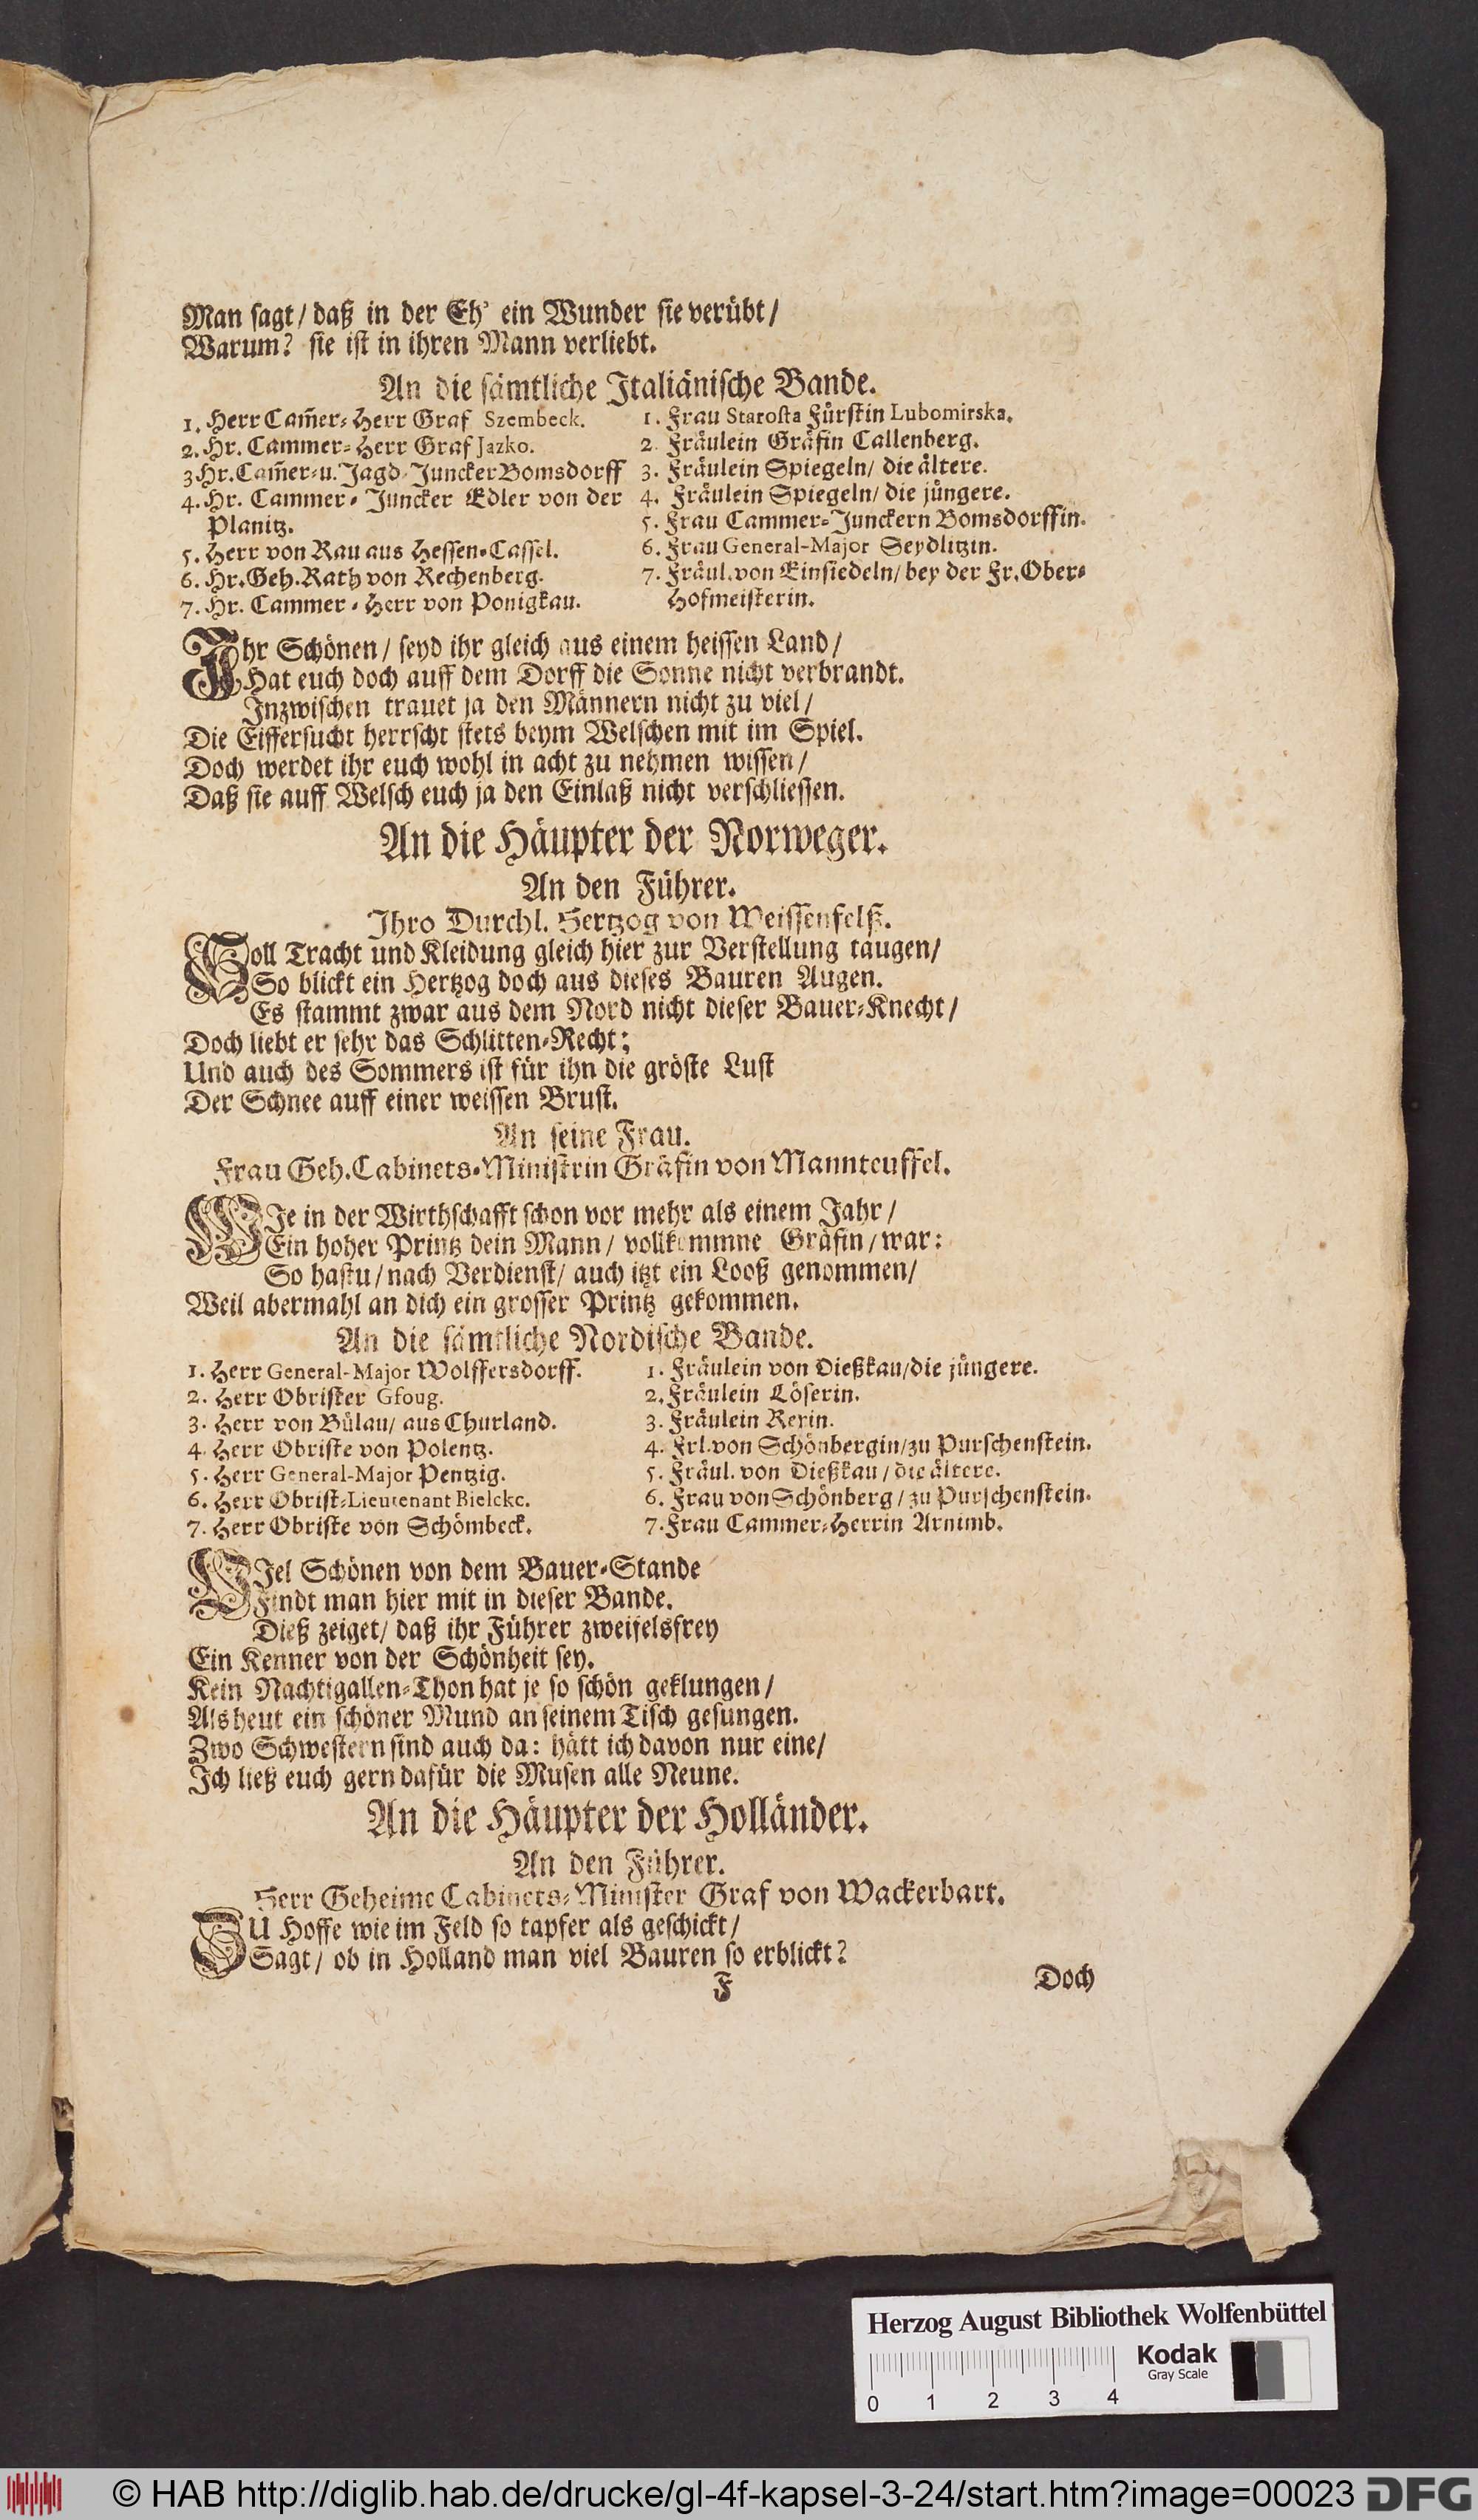 Man sagt/ daß in der Eh' ein Wunder sie verübt/
Warum? sie ist in ihren Mann verliebt.
An die sämtliche Italiänische Bande.
1. Herr Cam̃er-Herr Graf Szembeck.
2. Hr. Cammer-Herr Graf Jazko.
3 Hr. Cam̃er-u. Jagd-Juncker Bomsdorff
4. Hr. Cammer-Juncker Edler von der
Planitz.
5. Herr von Rau aus Hessen-Cassel.
6. Hr. Geh. Rath von Rechenberg.
7. Hr. Cammer-Herr von Ponigkau.
1. Frau Starosta Fürstin Lubomirska.
2. Fräulein Gräfin Callenberg.
3. Fräulein Spiegeln/ die ältere.
4. Fräulein Spiegeln/ die jüngere.
5. Frau Cammer-Junckern Bomsdorffin.
6. Frau General-Major Seydlitzin.
7. Fräul. von Einsiedeln/ bey der Fr. Ober-
Hofmeisterin.
Ihr Schönen/ seyd ihr gleich aus einem heissen Land/
Hat euch doch auff dem Dorff die Sonne nicht verbrandt.
Inzwischen trauet ja den Männern nicht zu viel/
Die Eiffersucht herrscht stets beym Welschen mit im Spiel.
Doch werdet ihr euch wohl in acht zu nehmen wissen/
Daß sie auff Welsch euch ja den Einlaß nicht verschliessen.
An die Häupter der Norweger.
An den Führer.
Ihro Durchl. Hertzog von Weissenfelß.
Soll Tracht und Kleidung gleich hier zur Verstellung taugen/
So blickt ein Hertzog doch aus dieses Bauren Augen.
Es stammt zwar aus dem Nord nicht dieser Bauer-Knecht/
Doch liebt er sehr das Schlitten-Recht;
Und auch des Sommers ist für ihn die gröste Lust
Der Schnee auff einer weissen Brust.
An seine Frau.
Frau Geh. Cabinets-Ministrin Gräfin von Mannteuffel.
WIe in der Wirthschafft schon vor mehr als einem Jahr/
Ein hoher Printz dein Mann/ vollkommne Gräfin/ war:
So hastu/ nach Verdienst/ auch itzt ein Looß genommen/
Weil abermahl an dich ein grosser Printz gekommen.
An die sämtliche Nordische Bande.
1. Herr General-Major Wolffersdorff.
2. Herr Obrister Gfoug.
3. Herr von Bülau/ aus Churland.
4. Herr Obriste von Polentz.
5. Herr General-Major Pentzig.
6. Herr Obrist-Lieutenant Bielcke.
7. Herr Obriste von Schömbeck.
1. Fräulein von Dießkau/ die jüngere.
2. Fräulein Löserin.
3. Fräulein Rexin.
4. Frl. von Schönbergin/ zu Purschenstein.
5. Fräul. von Dießkau/ die ältere.
6. Frau von Schönberg/ zu Purschenstein.
7. Frau Cammer-Herrin Arnimb.
VIel Schönen von dem Bauer-Stande
Findt man hier mit in dieser Bande.
Dieß zeiget/ daß ihr Führer zweifelsfrey
Ein Kenner von der Schönheit sey.
Kein Nachtigallen-Thon hat je so schön geklungen/
Als heut ein schöner Mund an seinem Tisch gesungen.
Zwo Schwestern sind auch da: hätt ich davon nur eine/
Ich ließ euch gern dafür die Musen alle Neune.
An die Häupter der Holländer.
An den Führer.
Herr Geheime Cabinets-Minister Graf von Wackerbart.
ZU Hoffe wie im Feld so tapfer als geschickt/
Sagt/ ob in Holland man viel Bauren so erblickt?
F
Doch
Herzog August Bibliothek Wolfenbüttel
Kodak
Gray Scale
0 1 2 3 4
© HAB http://diglib.hab.de/drucke/gl-4f-kapsel-3-24/start.htm?image=00023
DFG